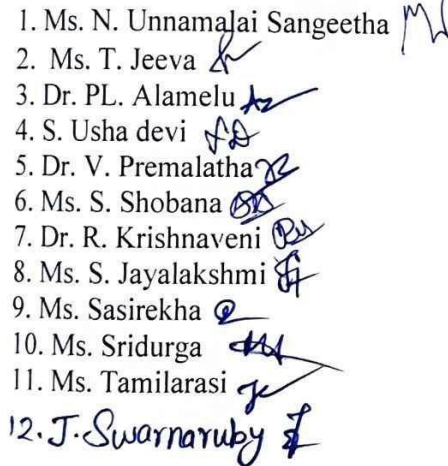 1. Ms. N. Unnamalai Sangeetha
2. Ms. T. Jeeva
3. Dr. PL. Alamelu
4. S. Usha devi
5. Dr. V. Premalatha
6. Ms. S. Shobana
7. Dr. R. Krishnaveni
8. Ms. S. Jayalakshmi
9. Ms. Sasirekha
10. Ms. Sridurga
11. Ms. Tamilarasi
12. J. Swarnaruby